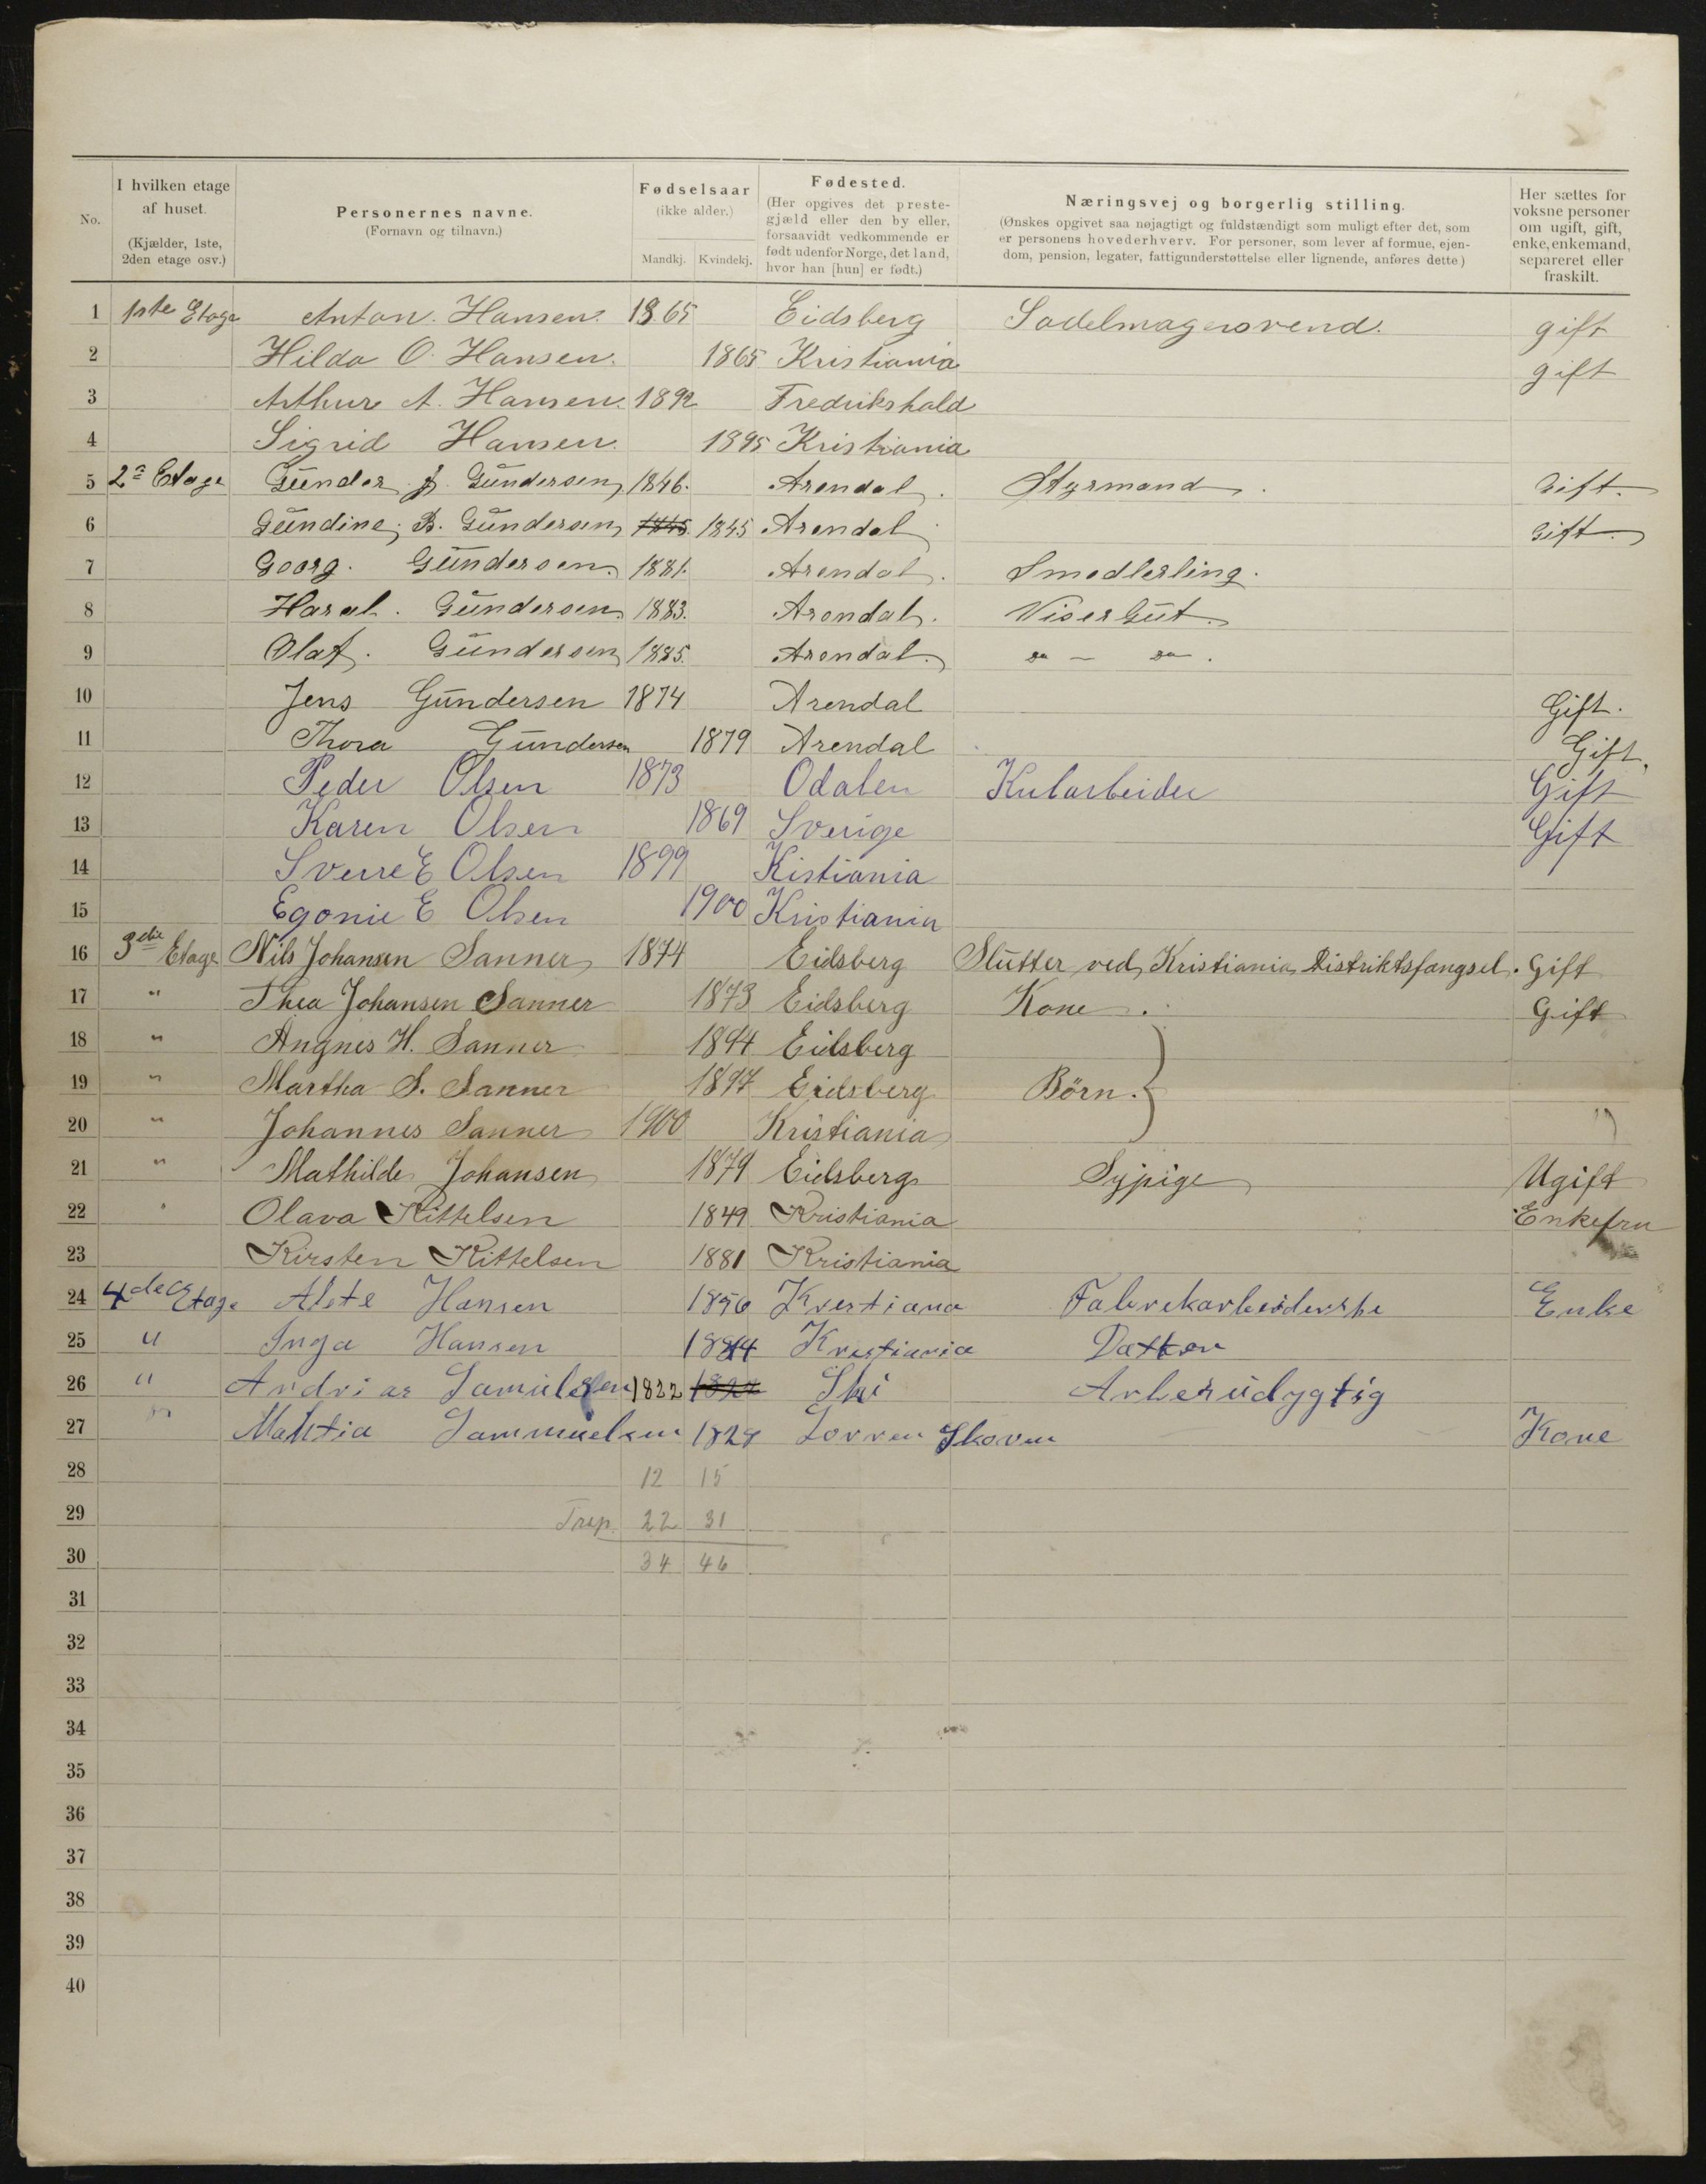 No.
I hvilken etage af huset.
(Kjælder, 1ste, 2den etage osv.)
Personernes navne.
(Fornavn og tilnavn.)
Fødselsaar
(ikke alder.)
Mandkj. Kvindekj.
Fødested.
(Her opgives det prestegjæld eller den by eller, forsaavidt vedkommende er født udenfor Norge, det land, hvor han [hun] er født.)
Næringsvej og borgerlig stilling.
(Ønskes opgivet saa nøjagtigt og fuldstændigt som muligt efter det, som er personens hovederhverv. For personer, som lever af formue, ejendom, pension, legater, fattigunderstøttelse eller lignende, anføres dette)
Her sættes for voksne personer om ugift, gift, enke, enkemand, separeret eller fraskilt.
1 1ste Etage Anton. Hansen. 1865 Eidsberg Sadelmagersvend. gift
2 Hilda O. Hansen. 1865 Kristiania gift
3 Arthur A. Hansen. 1892 Fredrikshald
4 Sigrid Hansen. 1895 Kristiania
5 2a Etage Gunder J. Gundersen 1846. Arendal. Styrmand. Gift.
6 Gundine, B. Gundersen 1845 1845 Arendal Gift.
7 Georg. Gundersen. 1881. Arendal. Smedlerling.
8 Haral. Gundersen. 1883. Arendal. Visergut.
9 Olaf. Gundersen 1885. Arendal. do — do.
10 Jens Gundersen 1874 Arendal Gift.
11 Thora Gundersen 1879 Arendal Gift.
12 Peder Olsen 1873 Odalen Kularbeider Gift
13 Karen Olsen 1869 Sverige Gift
14 Sverre E Olsen 1899 Kistiania
15 Egonie E Olsen 1900 Kristiania
16 3die Etage Nils Johansen Sanner 1874 Eidsberg Slutter ved Kristiania Distriktsfangsel. Gift
17 " Thea Johansen Sanner 1873 Eidsberg Kone. Gift
18 " Angnes H. Sanner 1894 Eidsberg
19 " Martha S. Sanner 1897 Eidsberg Børn.
20 " Johannes Sanner 1900 Kristiania "
21 " Mathilde Johansen 1879 Eidsberg Sypige Ugift
22 " Olava Kittelsen 1849 Kristiania Enkefru
23 Kirsten Kittelsen 1881 Kristiania
24 4de Etage Alete Hansen 1856 Krestiana Fabrekarbeiderske Enke
25 " Inga Hansen 1884 Krestiania Datter
26 " Andrias Samuelsen 1822 1822 Ski Arbeiudygtig
27 " Mahtia Sammuelsen 1828 Skoven Kone
28 12 15
29 Trsp. 22 31
30 34 46
31
32
33
34
35
36
37
38
39
40